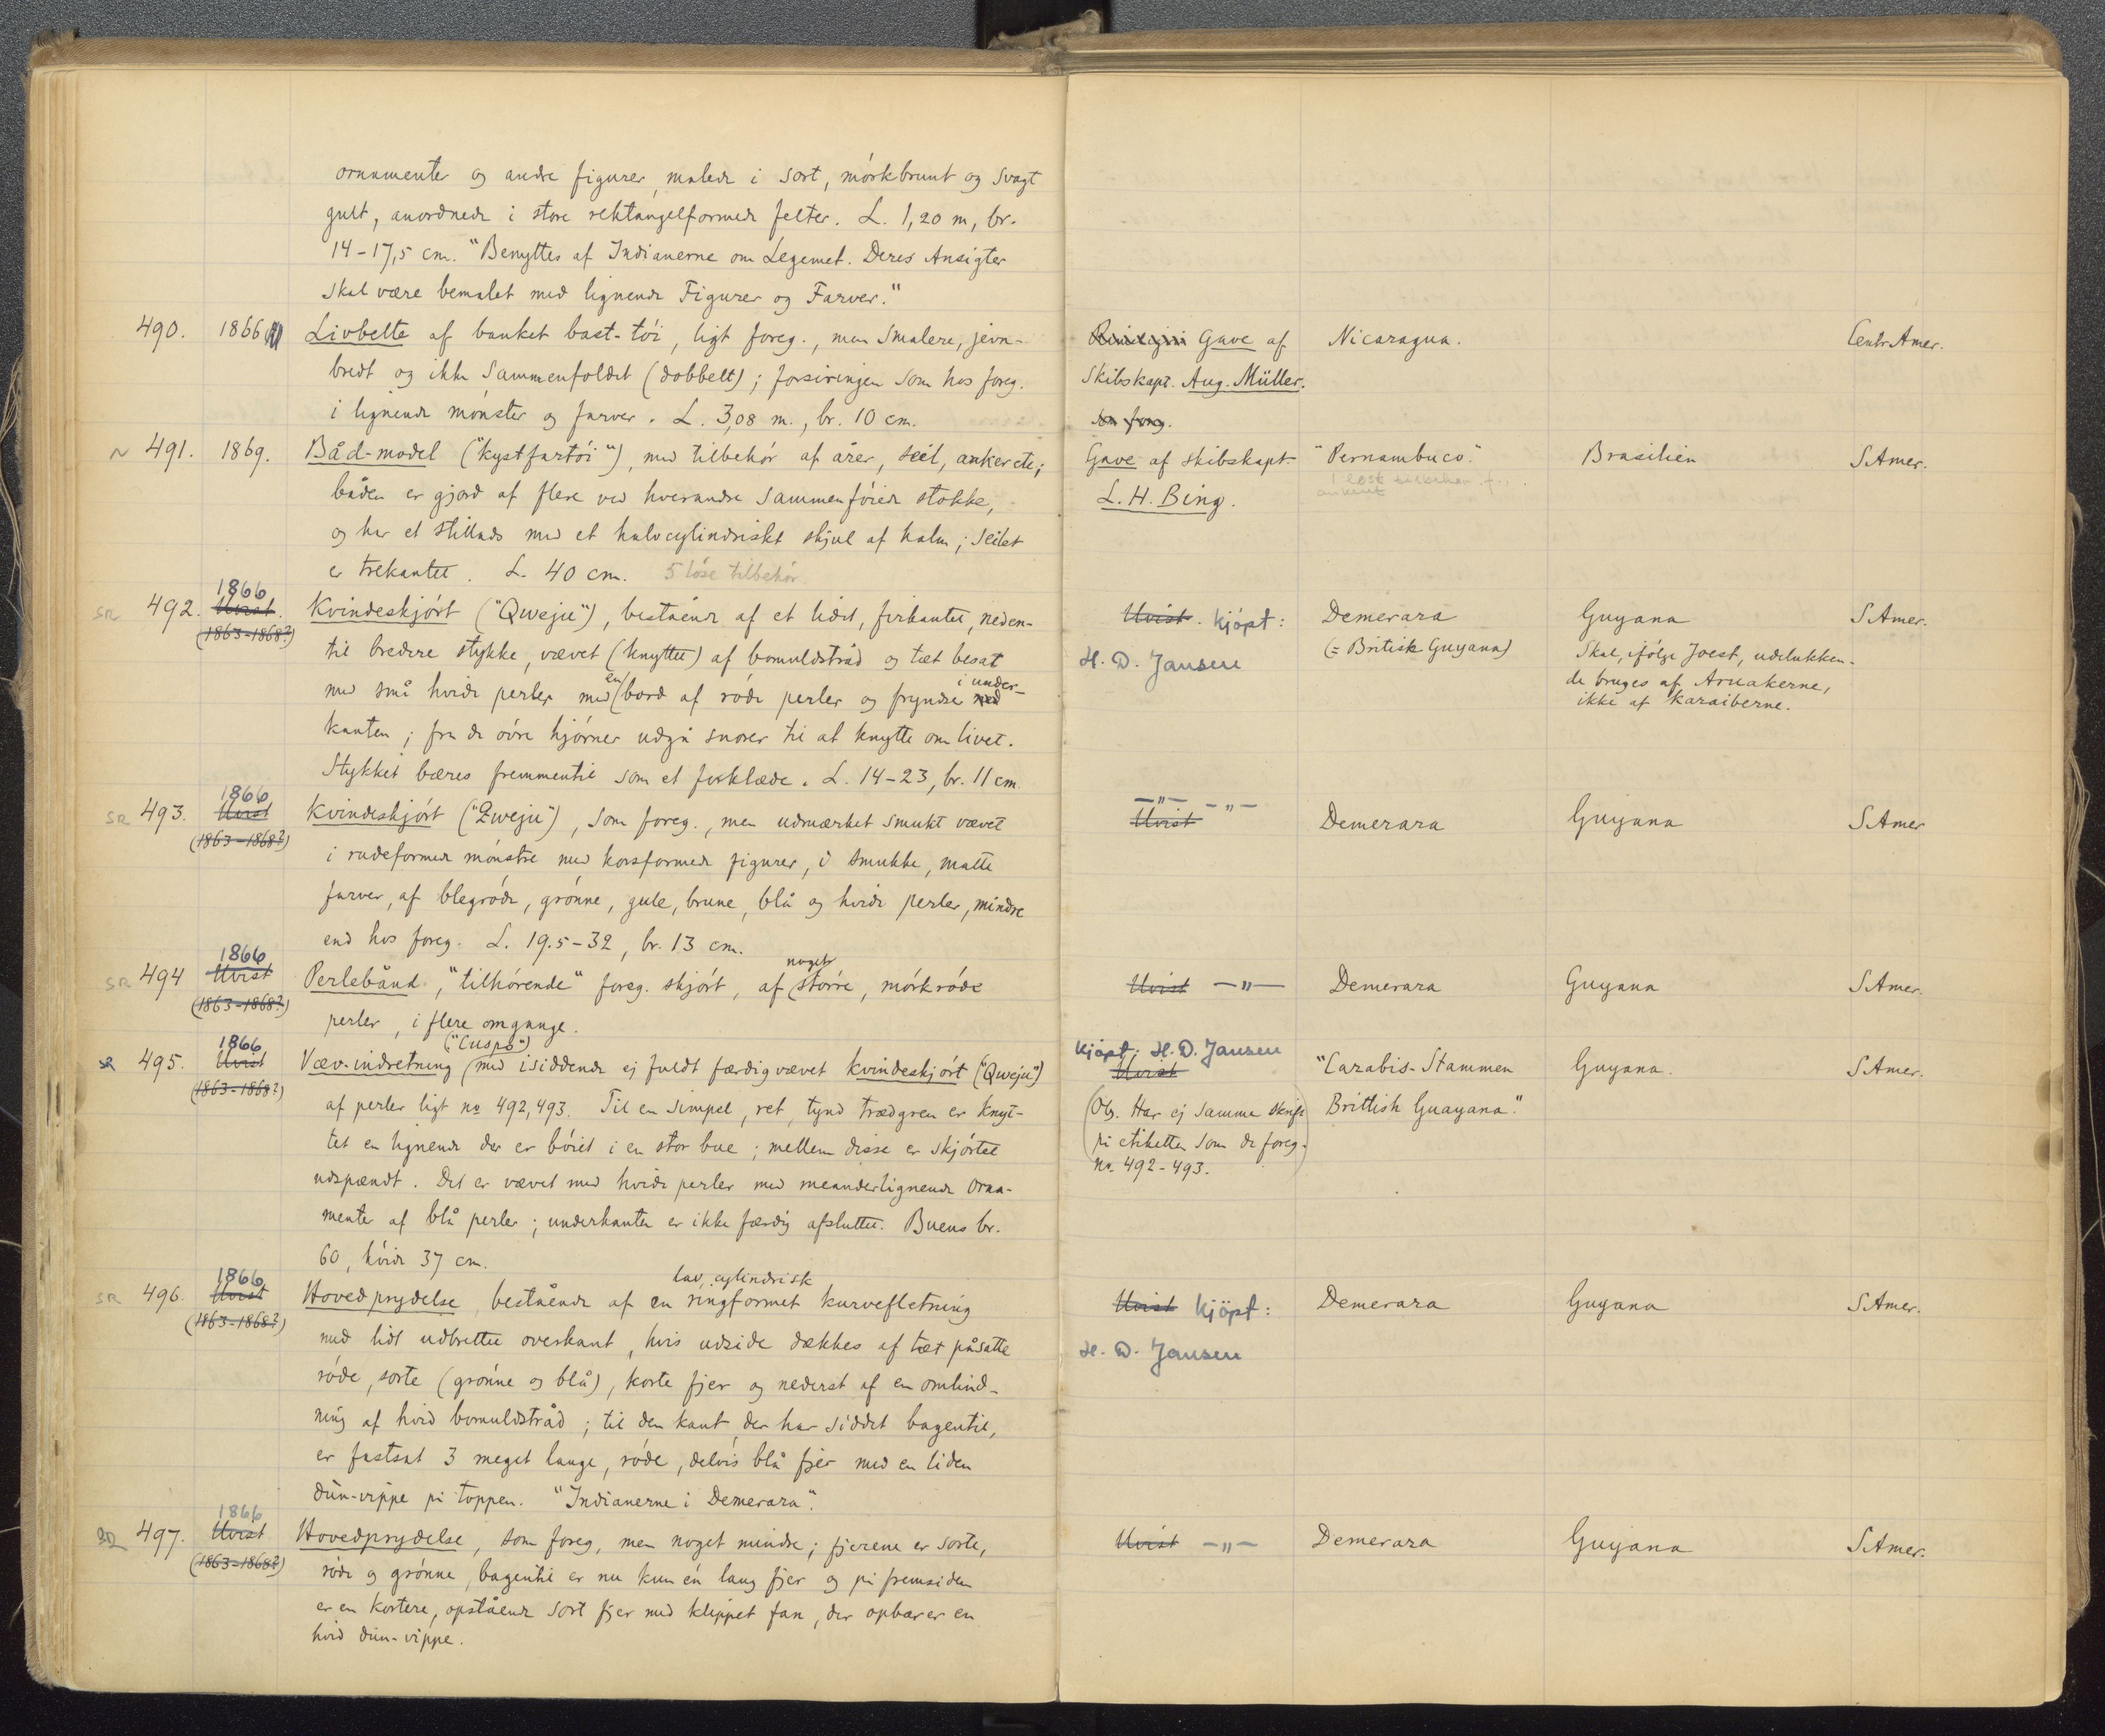 ornamenter og andre figurer, malede i sort, mörkbrunt og svagt
gult, anordnede i store rektangelformede felter. L. 1,20 m, br.
14-17,5 cm. "Benyttes af Indianerne om Legemet. Deres Ansigter
skal være bemalet med lignende Figurer og Farver."
490. 1866 Livbelte af banket bast-töi, ligt foreg., men smalere, jevn- Gave af Nicaragua. Centr Amer.
bredt og ikke sammenfoldet (dobbelt); forsiringen som hos foreg. Skibskapt. Aug. Müller.
i lignende mönster og farver. L. 3,08 m., br. 10 cm. som foreg.
~ 491. 1869. Båd-model ("kystfartöi"), med tilbehör af årer, seil, anker etc; Gave af skibskapt. "Pernambuco." Brasilien S Amer.
båden er gjord af flere ved hverandre sammenföiede stokke, L. H. Bing.
og har et stillads med et halvcylindriskt skjul af halm; seilet
er trekantet. L. 40 cm. 5 löse tilbehör
1866
SR 492. Uvist. Kvindeskjört ("Qweju"), bestående af et lidet, firkantet, neden- Uvist. kjöpt: Demerara Guyana S Amer.
(1863-1868?) til bredere stykke, vævet (knyttet) af bomuldstråd og tæt besat H. D. Jansen (= British Guyana) Skal, ifölge Joest, udelukken-
med små hvide perler med en bord af röde perler og fryndser ned i under- de bruges af Aruakerne,
kanten; fra de övre hjörner udgå snorer til at knytte om livet. ikke af Karaiberne.
Stykket bæres fremmentil som et forklæde. L. 14-23, br. 11 cm.
1866
SR 493. Uvist Kvindeskjört ("Qweju"), som foreg., men udmærket smukt vævet —"— —"— Uvist Demerara Guyana S Amer
(1863-1868?) i rudeformede mönstre med korsformede figurer, i smukke, matte
farver, af blegröde, grönne, gule, brune, blå og hvide perler, mindre
end hos foreg. L. 19.5-32, br. 13 cm.
1866
SR 494 Uvist Perlebånd, "tilhörende" foreg. skjört, af noget större, mörkröde Uvist —"— Demerara Guyana S Amer.
(1863-1868?) perler, i flere omgange.
1866 ("Cuspo")
SR 495. Uvist Væv-indretning med isiddende ej fuldt færdigvævet kvindeskjört ("Qweju") kjöpt; H. D. Jansen Uvist "Carabis-Stammen Guyana. S Amer.
(1863-1868?) af perler ligt no 492, 493. Til en simpel, ret, tynd trædgren er knyt- (Obs. Har ej samme skrift Brittish Guayana".
tet en lignende der er böiet i en stor bue; mellem disse er skjörtet på etiketten som de foreg.
udspændt. Det er vævet med hvide perler med meanderlignende orna- no. 492-493.)
menter af blå perler; underkanten er ikke færdig afsluttet. Buens br.
60, höide 37 cm.
1866
SR 496. Uvist Hovedprydelse, bestående af en lav, cylindrisk ringformet kurvefletning Uvist kjöpt: Demerara Guyana S Amer.
(1863-1868?) med lidt udbrettet overkant, hvis udside dækkes af tæt påsatte H. D. Jansen
röde, sorte (grönne og blå), korte fjer og nederst af en omlind-
ning af hvid bomuldstråd; til den kant, der har siddet bagentil,
er fastsat 3 meget lange, röde, delvis blå fjer med en liden
dun-vippe på toppen. "Indianerne i Demerara".
1866
SR 497. Uvist Hovedprydelse, som foreg, men noget mindre; fjerene er sorte, Uvist —"— Demerara Guyana S Amer.
(1863-1868?) röde og grönne, bagentil er nu kun én lang fjer og på fremsiden
er en kortere, opstående sort fjer med klippet fan, der opbærer en
hvid dun-vippe.